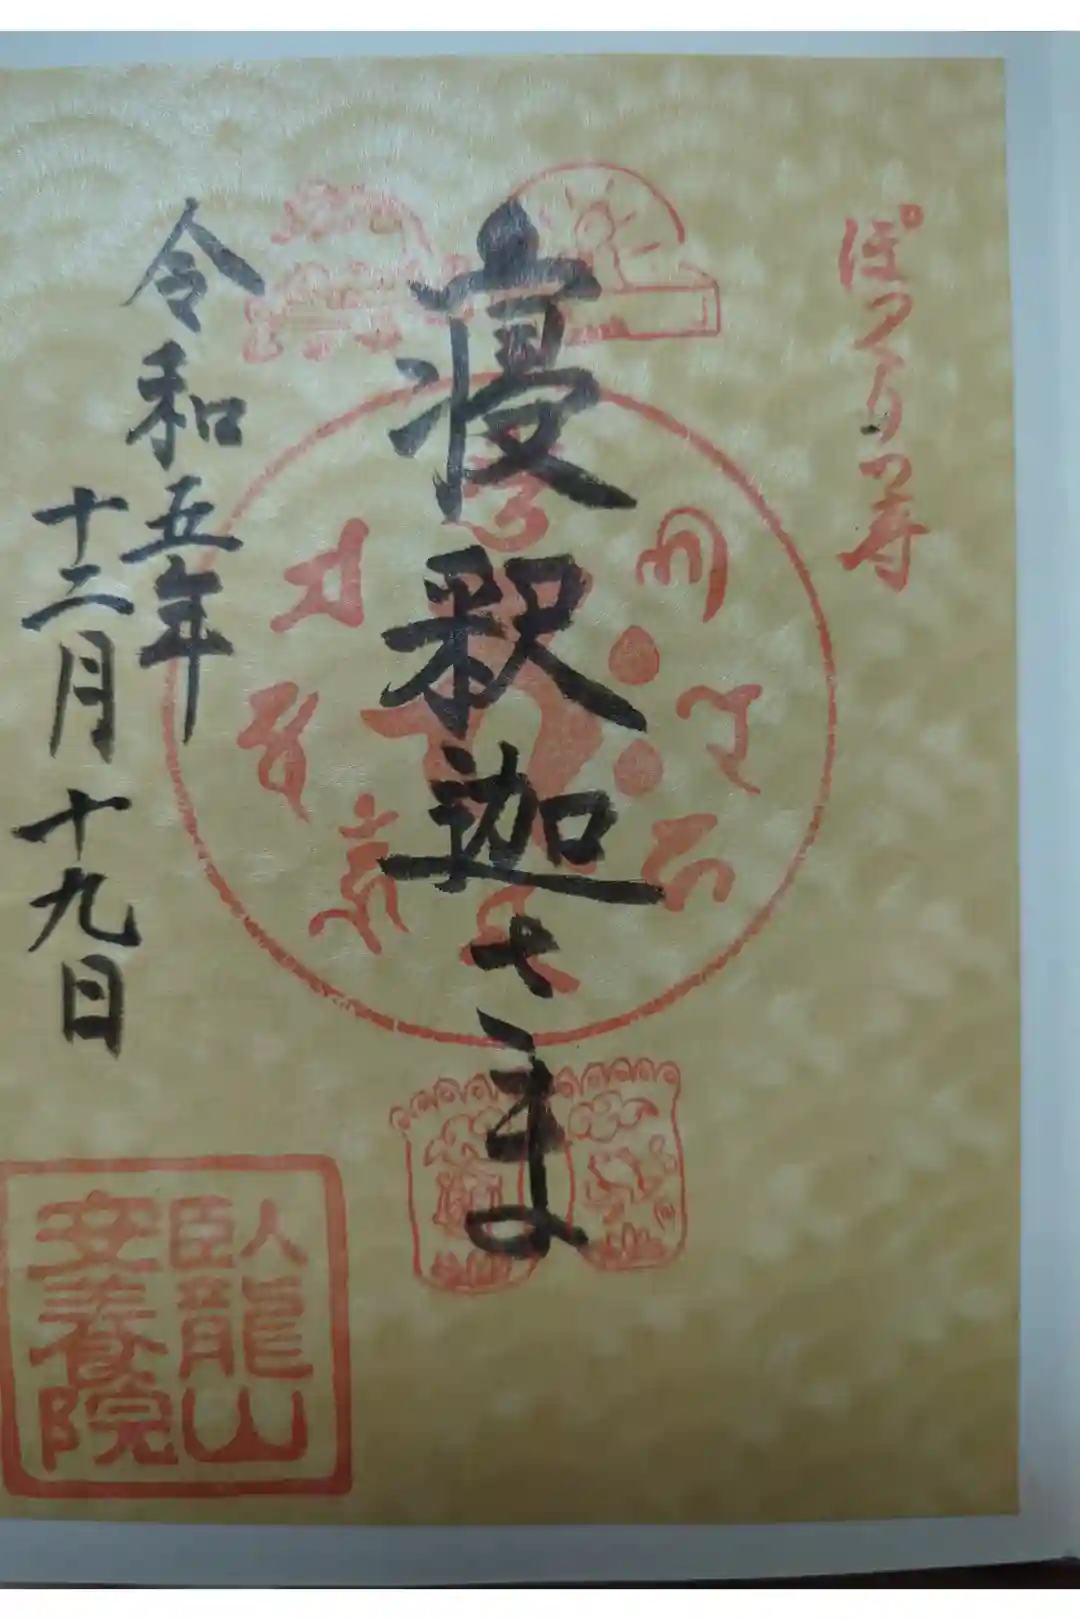 ぽっくり尊
寝釈迦さま
令和五年
十二月十九日
臥龍山
安養院